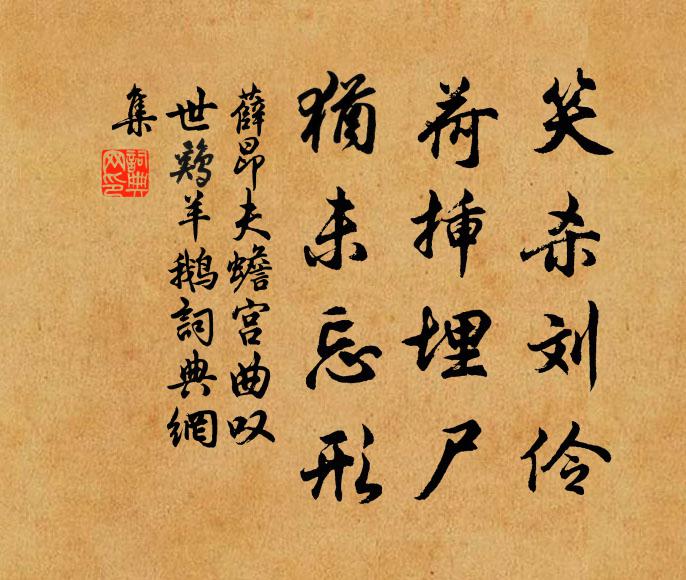 笑杀刘伶
荷挿埋尸
猶未忘形
薛昂夫蟾宫曲叹
世鷄羊鵝詞典網
集
詞典網印